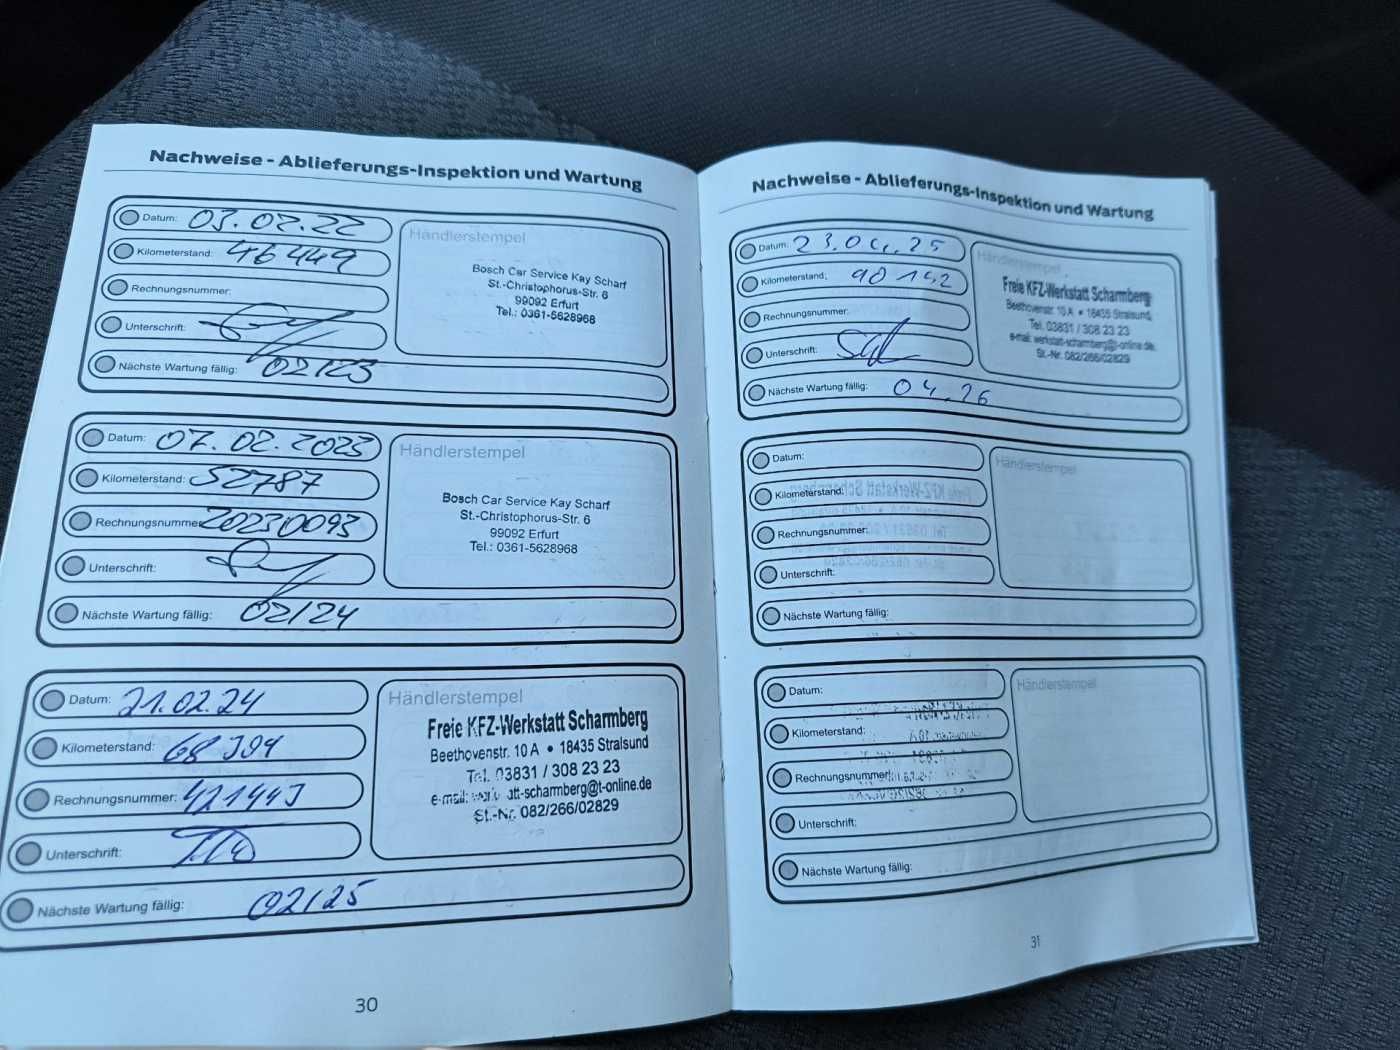 Nachweise - Ablieferungs-Inspektion und Wartung
Datum: 03.02.22
Kilometerstand: 46449
Rechnungsnummer:
Unterschrift:
Nächste Wartung fällig: 02/23
Händlerstempel
Bosch Car Service Kay Scharf
St.-Christophorus-Str. 6
99092 Erfurt
Tel.: 0361-5628968
Datum: 07.02.2023
Kilometerstand: 52787
Rechnungsnummer: 20230093
Unterschrift:
Nächste Wartung fällig: 02/24
Händlerstempel
Bosch Car Service Kay Scharf
St.-Christophorus-Str. 6
99092 Erfurt
Tel.: 0361-5628968
Datum: 21.02.24
Kilometerstand:
Rechnungsnummer:
Unterschrift:
Nächste Wartung fällig: 02/25
Händlerstempel
Freie KFZ-Werkstatt Scharmberg
Beethovenstr. 10 A • 18435 Stralsund
Tel. 03831 / 308 23 23
e-mail: werkstatt-scharmberg@t-online.de
St.-Nr. 082/266/02829
30
Nachweise - Ablieferungs-Inspektion und Wartung
Datum: 23.04.25
Kilometerstand: 90152
Rechnungsnummer:
Unterschrift:
Nächste Wartung fällig: 04.26
Händlerstempel
Freie KFZ-Werkstatt Scharmberg
Beethovenstr. 10 A • 18435 Stralsund
Tel. 03831 / 308 23 23
e-mail: werkstatt-scharmberg@t-online.de
St.-Nr. 082/266/02829
Datum:
Kilometerstand:
Rechnungsnummer:
Unterschrift:
Nächste Wartung fällig:
Händlerstempel
Datum:
Kilometerstand:
Rechnungsnummer:
Unterschrift:
Nächste Wartung fällig:
Händlerstempel
31